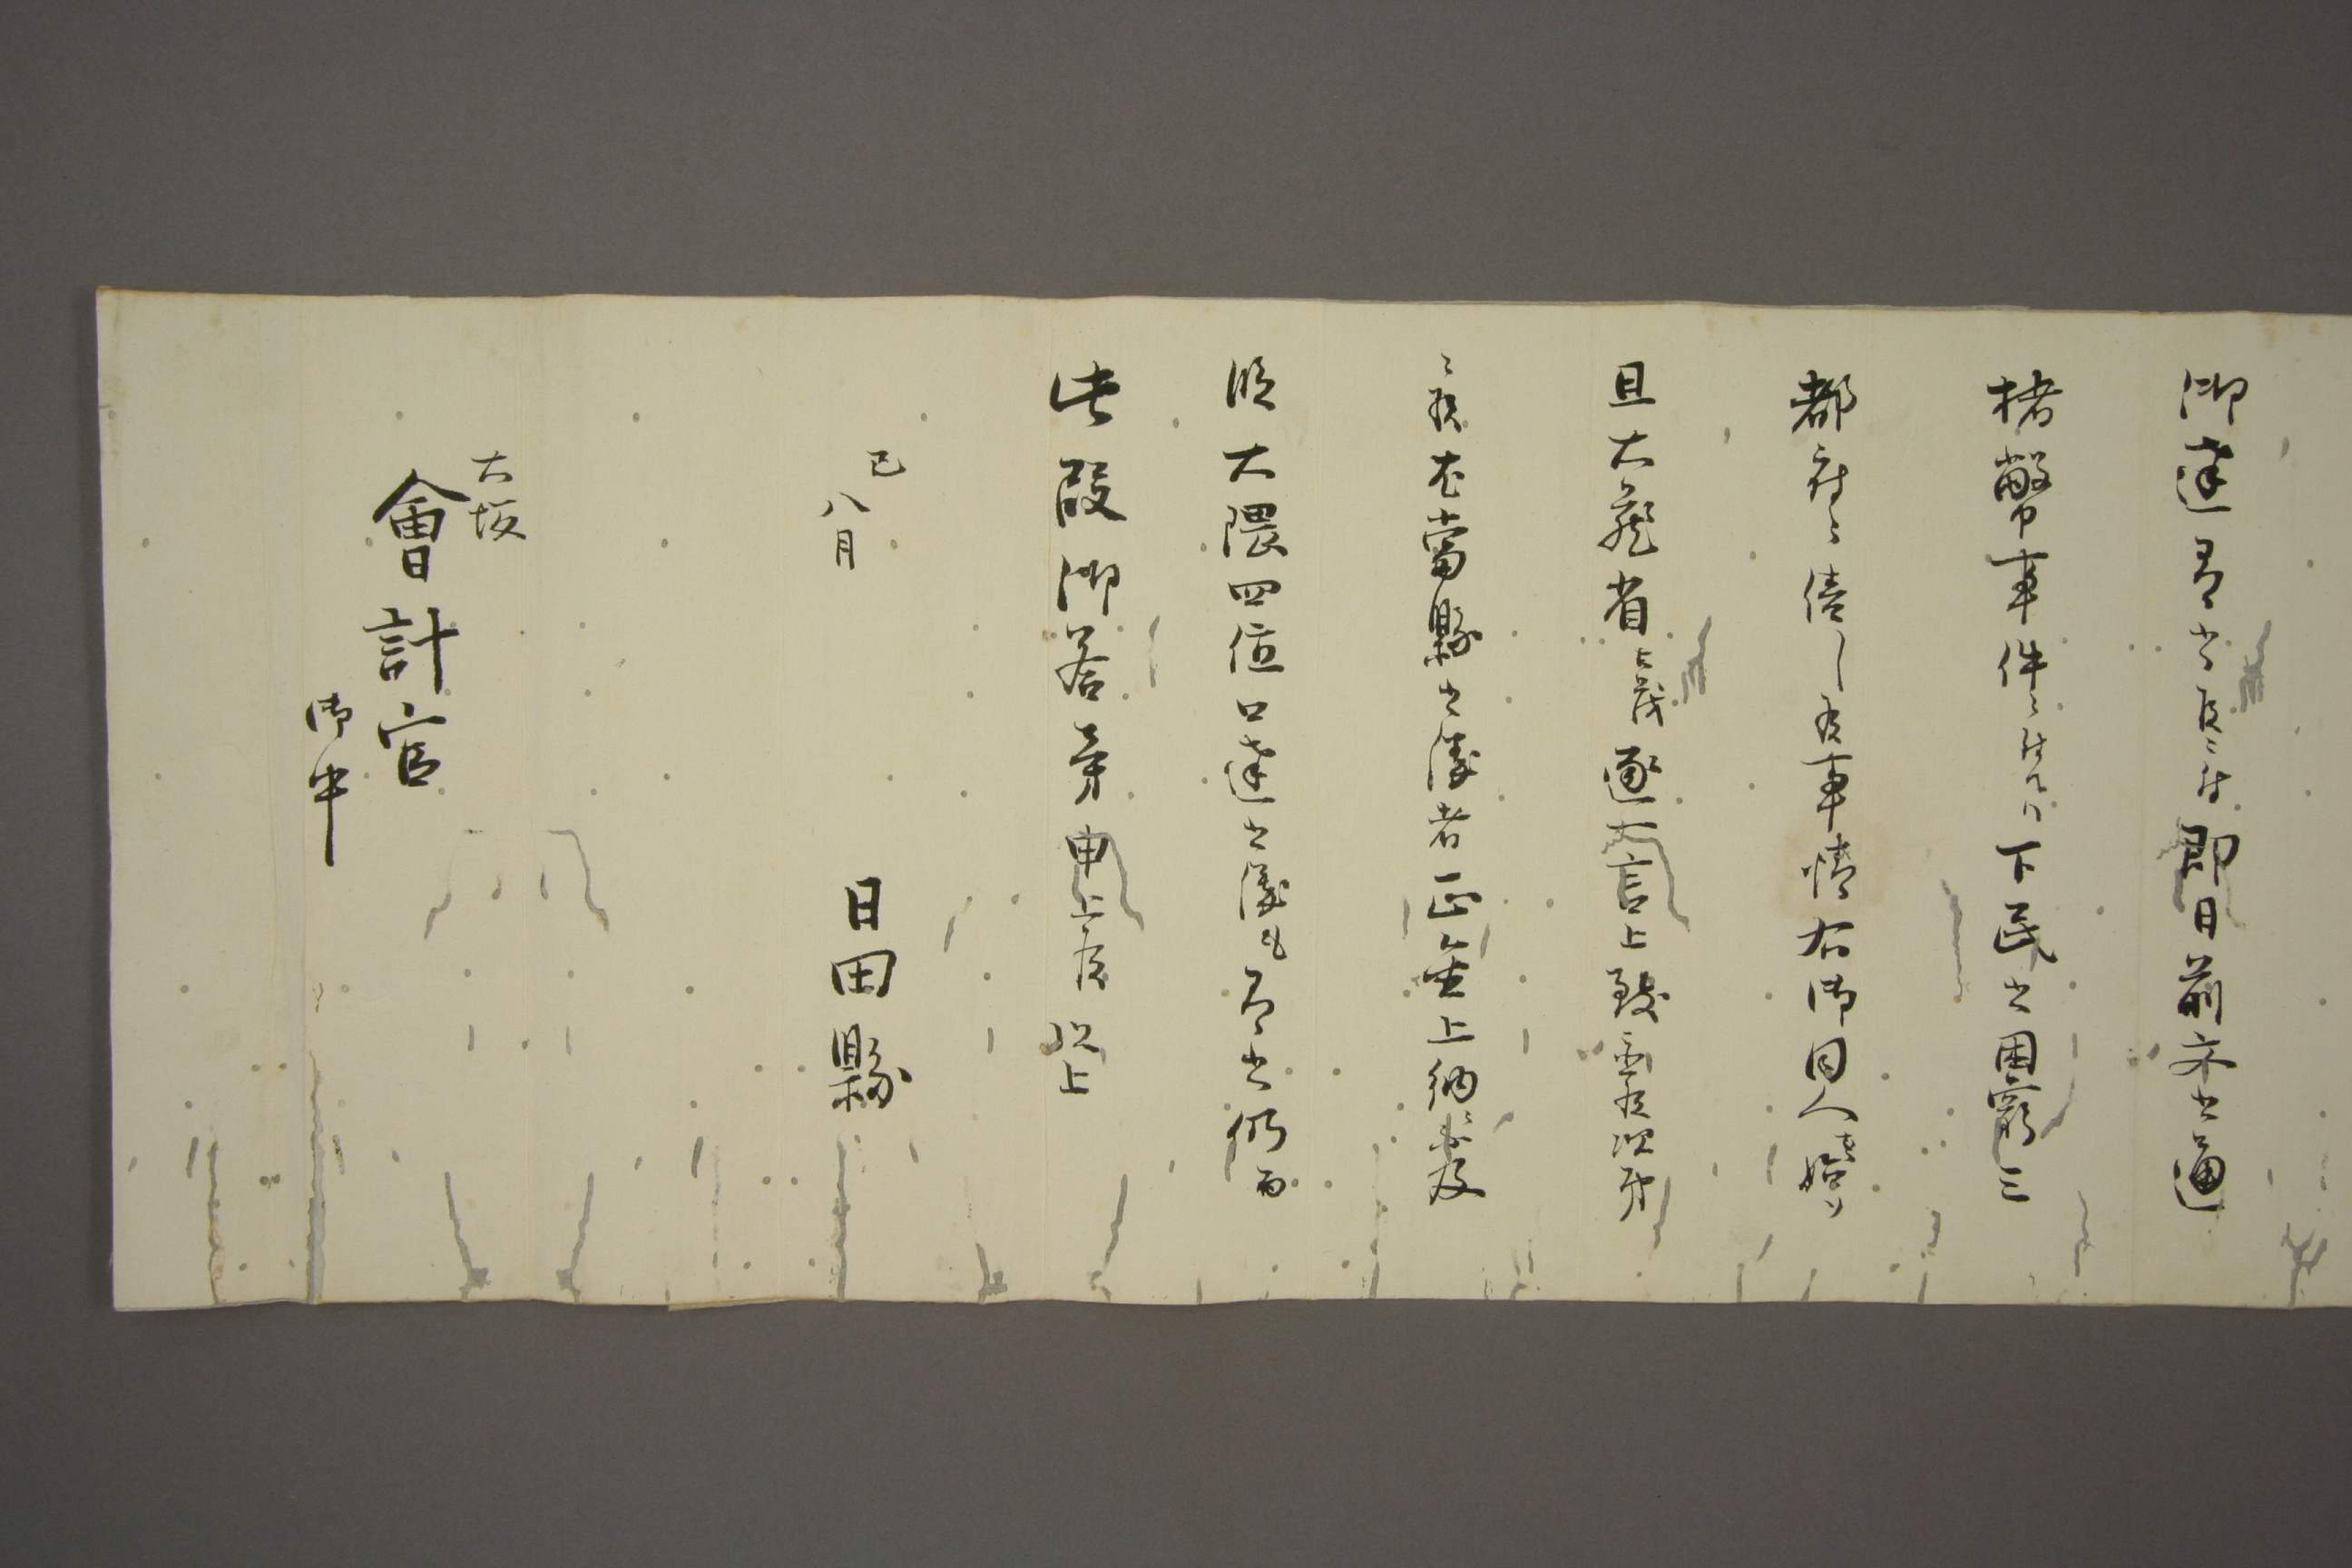 御達有之候ニ付即日前文之通
楮幣事件ニ付而ハ下民之困窮三
都府ニ倍し候事情右御同人幷
且大蔵省之逐一言上致置候次第
ニ候故當縣之儀者正金上納ニ不及
段大隈四位口達之儀も有之仍而
此段御答旁申上候以上
巳八月
日田縣
大坂
會計官
御中